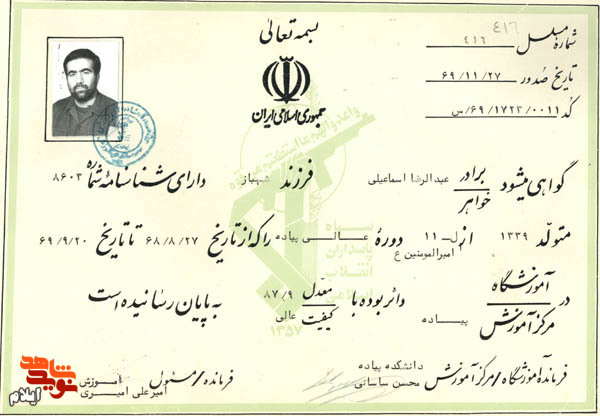 بسمه تعالی
جمهوری اسلامی ایران
شماره مسلسل ۴۱۶
۴۱۶
تاریخ صدور ۶۹/۱۱/۲۷
کد ۰۰۱۱-۶۹/۱۷۲۳/س
گواهی میشود برادر عبدالرضا اسماعیلی فرزند شهباز دارای شناسنامهٔ شماره ۸۶۰۳
خواهر
متولد ۱۳۳۹ از ل-۱۱ امیرالمومنین ع دورهٔ عالی پیاده را که از تاریخ ۶۸/۸/۲۷ تا تاریخ ۶۹/۹/۲۰
در آموزشگاه
مرکز آموزش پیاده دائر بوده با معدل ۸۷/۹ به پایان رسانیده است
کیفیت عالی
فرمانده آموزشگاه/مرکز آموزش دانشکده پیاده
محسن ساسانی
فرمانده/مسئول آموزش
امیرعلی امیری
سپاه
پاسداران
انقلاب
اسلامی
۱۳۵۷
نوید شاهد
ایلام